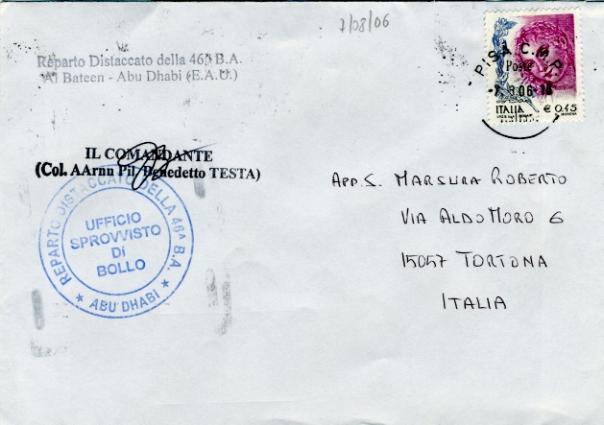 7/08/06
Reparto Distaccato della 46^ B.A.
Al Bateen - Abu Dhabi (E.A.U.)
PISA C.M.P.
Poste
-7.8.06-
ITALIA € 0,45
IL COMANDANTE
(Col. AArnn Pil. Benedetto TESTA)
REPARTO DISTACCATO DELLA 46ª B.A.
UFFICIO
SPROVVISTO
Di
BOLLO
★ ABU DHABI ★
APP.S. MARSURA ROBERTO
VIA ALDO MORO 6
15057 TORTONA
ITALIA